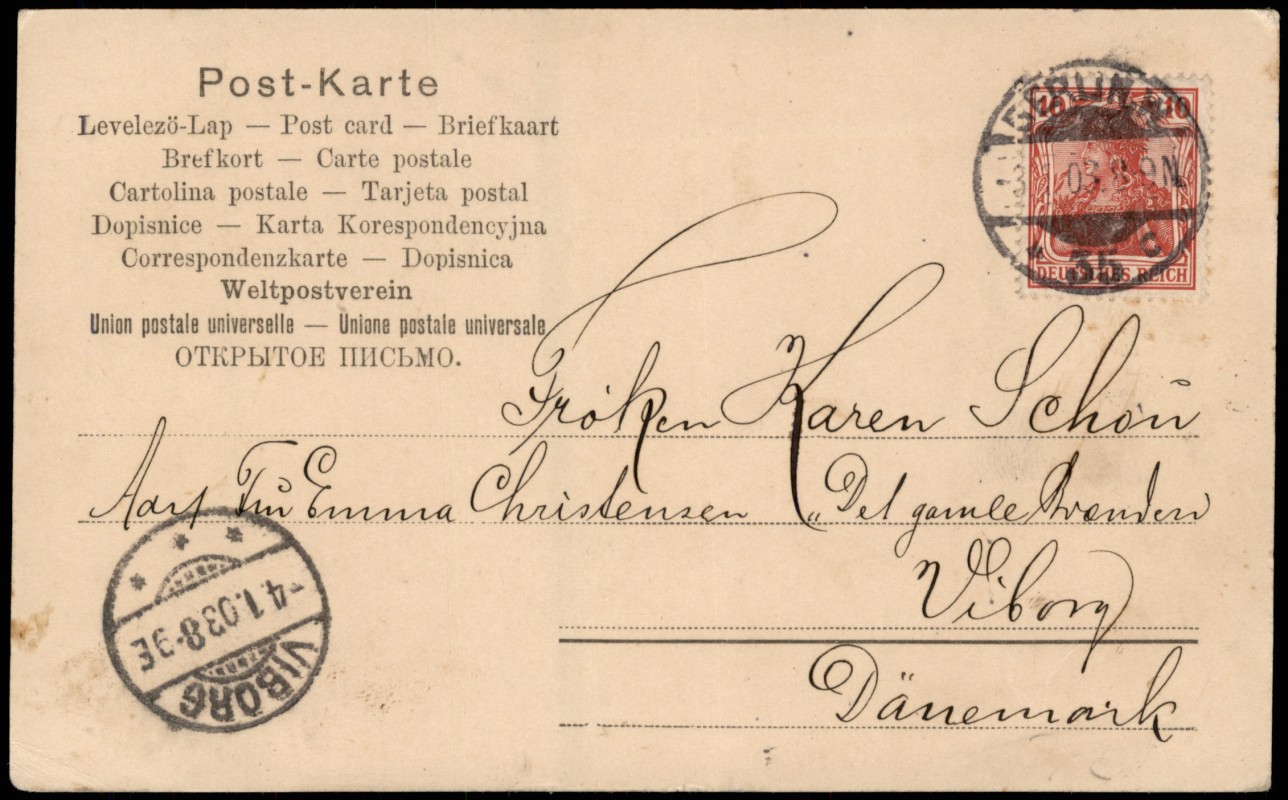 Post-Karte
Levelezö-Lap — Post card — Briefkaart
Brefkort — Carte postale
Cartolina postale — Tarjeta postal
Dopisnice — Karta Korespondencyjna
Correspondenzkarte — Dopisnica
Weltpostverein
Union postale universelle — Unione postale universale
ОТКРЫТОЕ ПИСЬМО.
BERLIN W
03 8-9N
* 35 c
10 10
DEUTSCHES REICH
Fröken Karen Schou
Fru Emma Christensen „Det gamle
Viborg
Dänemark
-4.1.03.8-9E
VIBORG